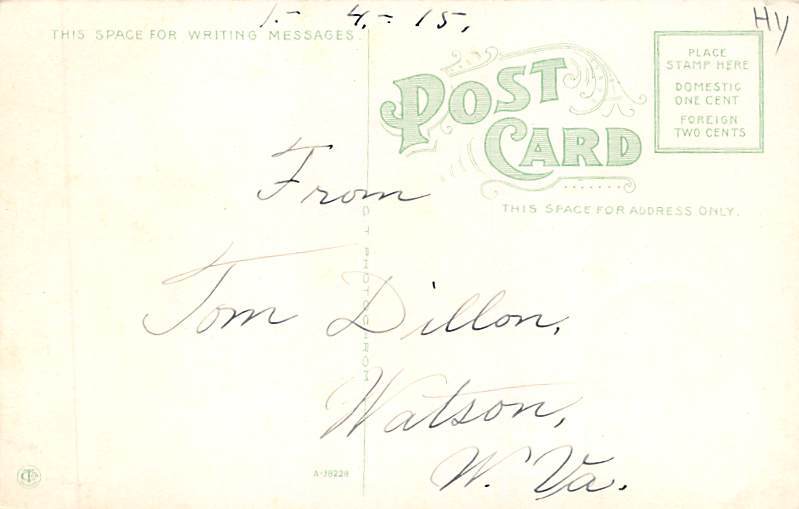 1.- 4.- 15.
HY
THIS SPACE FOR WRITING MESSAGES
POST
CARD
PLACE
STAMP HERE
DOMESTIC
ONE CENT
FOREIGN
TWO CENTS
THIS SPACE FOR ADDRESS ONLY.
From
Tom Dillon,
Watson,
W. Va.
C T PHOTOCHROM
A-38228